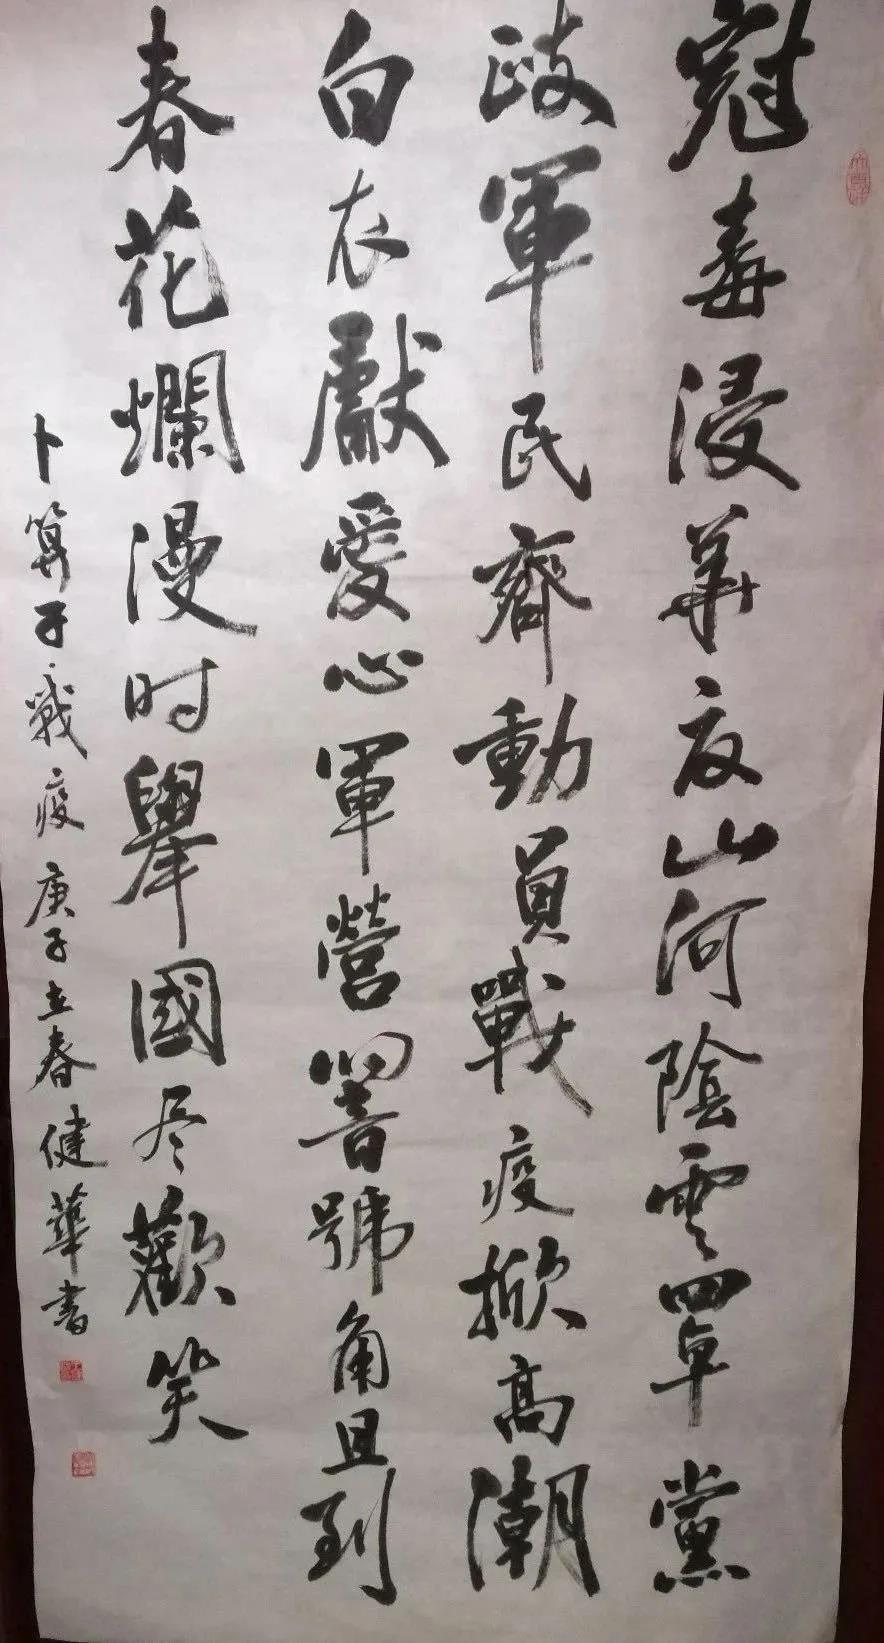 冠毒浸華夏山河陰雲罩黨
政軍民齊動員戰疫掀高潮
白衣獻愛心軍營響號角且到
春花爛漫时舉國尽歡笑
卜算子·戰疫庚子立春健華書